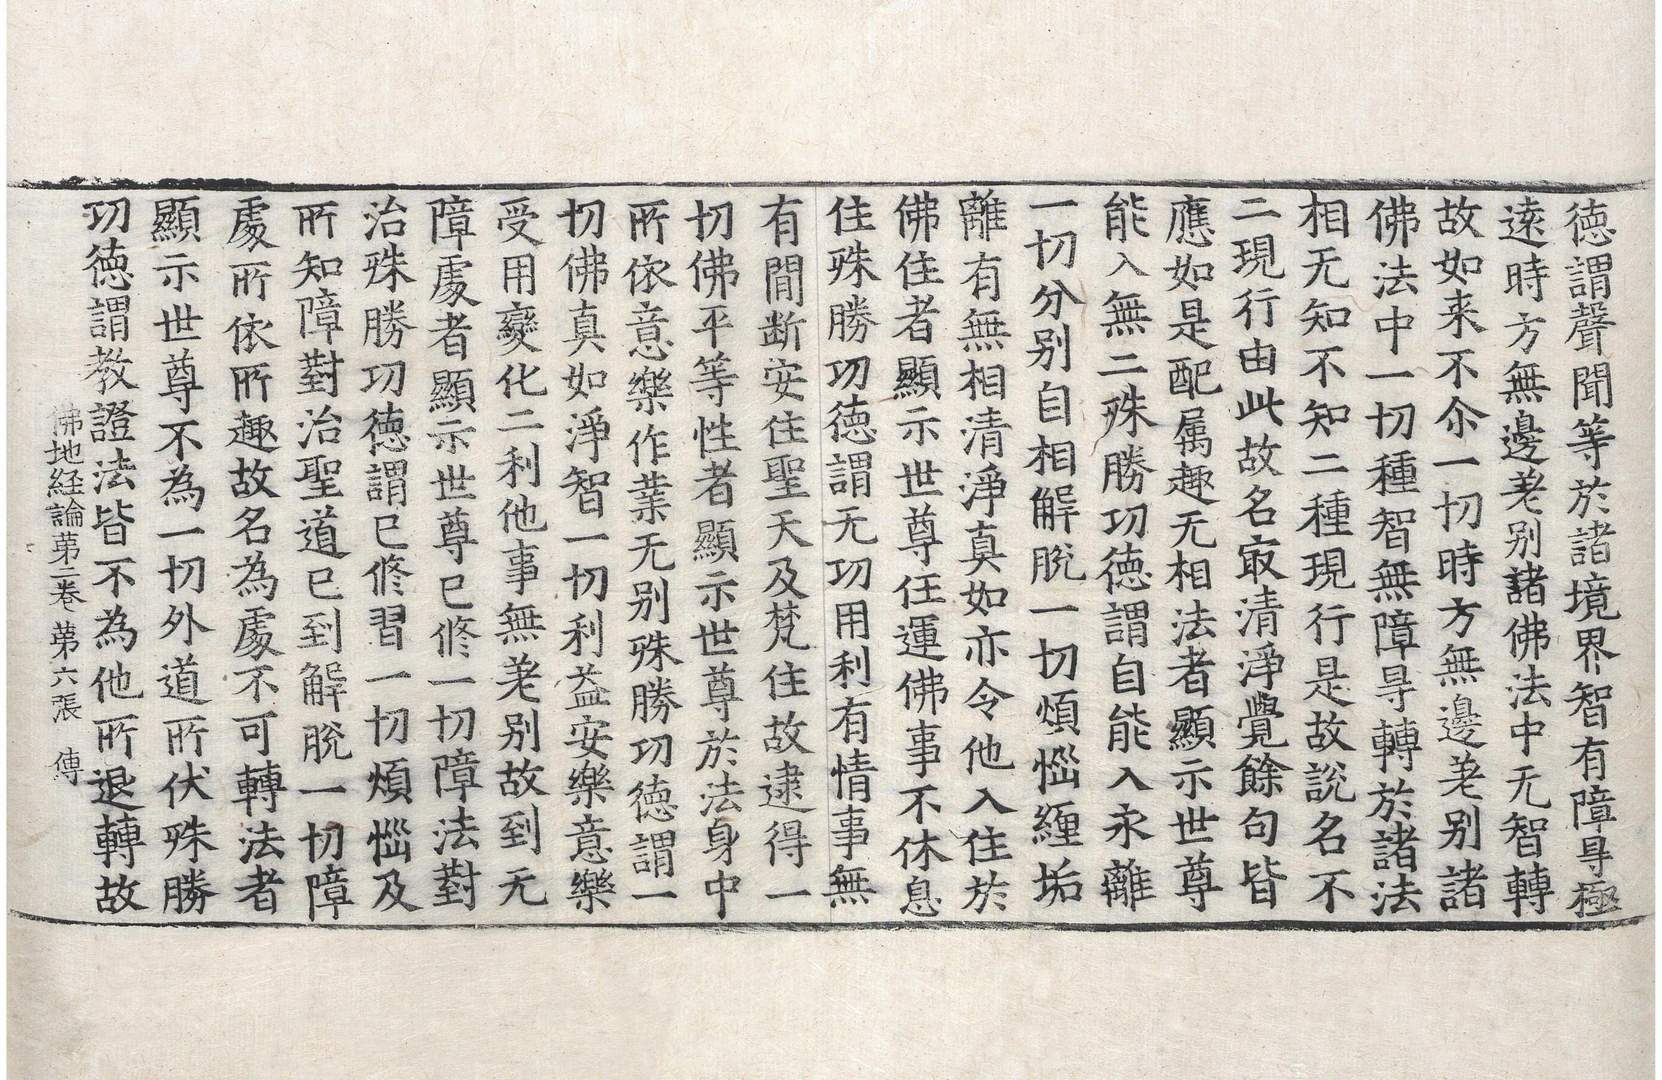 德謂聲聞等於諸境界智有障㝵極
遠時方無邊差别諸佛法中无智轉
故如来不尒一切時方無邊差别諸
佛法中一切種智無障㝵轉於諸法
相无知不知二種現行是故說名不
二現行由此故名㝡清淨覺餘句皆
應如是配属趣无相法者顯示世尊
能入無二殊勝㓛德謂自能入永離
一切分别自相解脫一切煩惱纏垢
離有無相清淨真如亦令他入住於
佛住者顯示世尊任運佛事不休息
住殊勝㓛德謂无㓛用利有情事無
有間断安住聖天及梵住故逮得一
切佛平等性者顯示世尊於法身中
所依意樂作業无别殊勝㓛德謂一
切佛真如淨智一切利益安樂意樂
受用變化二利他事無差别故到无
障處者顯示世尊已修一切障法對
治殊勝㓛德謂已修習一切煩惱及
所知障對治聖道已到解脫一切障
處所依所趣故名為處不可轉法者
顯示世尊不為一切外道所伏殊勝
㓛德謂教證法皆不為他所退轉故
佛地経論苐二卷 苐六張 傳